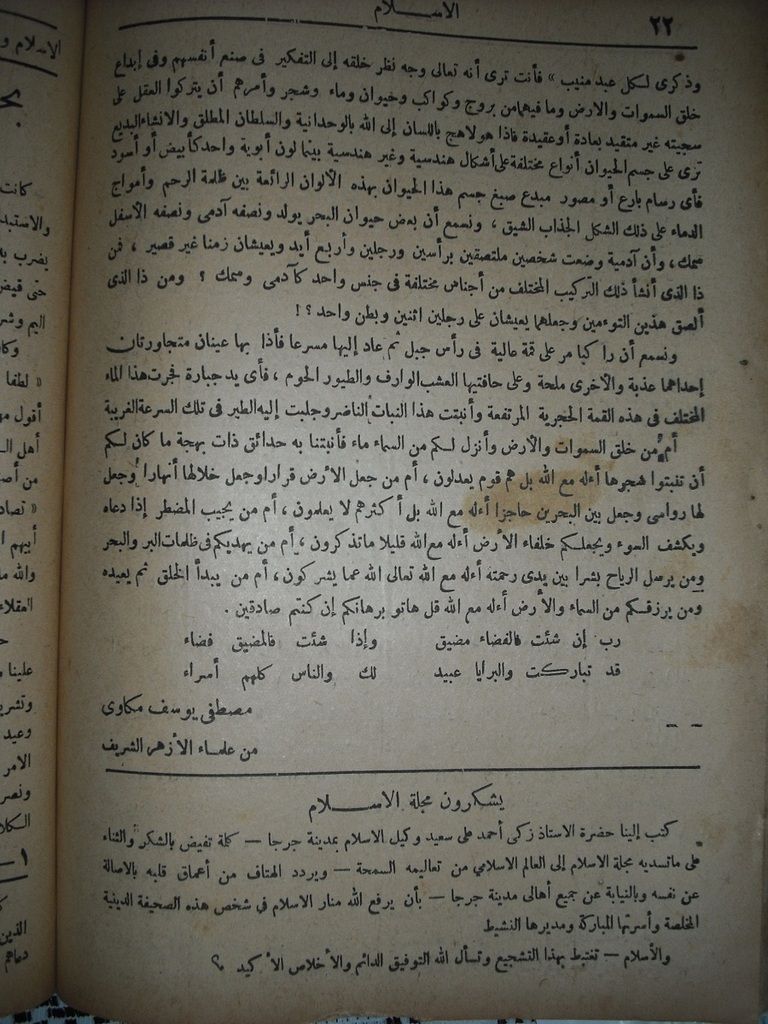 ٢٢
الاســـلام
وذكرى لكل عبد منيب » فأنت ترى أنه تعالى وجه نظر خلقه إلى التفكير فى صنع أنفسهم وفى إبداع
خلق السموات والارض وما فيهما من بروج وكواكب وحيوان وماء وشجر وأمرهم أن يتركوا العقل على
سجيته غير متقيد بمادة أو عقيدة فاذا هو لاهج باللسان إلى الله بالوحدانية والسلطان المطلق والانشاء البديع
ترى على جسم الحيوان أنواع مختلفة على أشكال هندسية وغير هندسية بينما لون أبوية واحد كأبيض أو أسود
فأى رسام بارع أو مصور مبدع صبغ جسم هذا الحيوان بهذه الألوان الرائعة بين ظلمة الرحم وأمواج
الدماء على ذلك الشكل الجذاب الشيق ، ونسمع أن بعض حيوان البحر يولد ونصفه آدمى ونصفه الأسفل
سمك ، وأن آدمية وضعت شخصين ملتصقين برأسين ورجلين وأربع أيد ويعيشان زمنا غير قصير ، فمن
ذا الذى أنشأ ذلك التركيب المختلف من أجناس مختلفة فى جنس واحد كآدمى وسمك ؟ ومن ذا الذى
ألصق هذين التوءمين وجعلهما يعيشان على رجلين اثنين وبطن واحد ؟ !
ونسمع أن راكبا مر على قمة عالية فى رأس جبل ثم عاد إليها مسرعا فأذا بها عينان متجاورتان
إحداهما عذبة والأخرى ملحة وعلى حافتيها العشب الوارف والطيور الحوم ، فأى يد جبارة فجرت هذا الماء
المختلف فى هذه القمة الحجرية المرتفعة وأنبتت هذا النبات الناضر وجلبت إليه الطير فى تلك السرعة الغريبة
أم من خلق السموات والأرض وأنزل لكم من السماء ماء فأنبتنا به حدائق ذات بهجة ما كان لكم
أن تنبتوا شجرها أءله مع الله بل هم قوم يعدلون ، أم من جعل الأرض قرارا وجعل خلالها أنهارا وجعل
لها رواسى وجعل بين البحرين حاجزا أءله مع الله بل أكثرهم لا يعلمون ، أم من يجيب المضطر إذا دعاه
ويكشف السوء ويجعلكم خلفاء الأرض أءله مع الله قليلا ما تذكرون ، أم من يهديكم فى ظلمات البر والبحر
ومن يرسل الرياح بشرا بين يدى رحمته أءله مع الله تعالى الله عما يشركون ، أم من يبدأ الخلق ثم يعيده
ومن يرزقكم من السماء والأرض أءله مع الله قل هاتو برهانكم إن كنتم صادقين .
رب إن شئت فالفضاء مضيق وإذا شئت فالمضيق فضاء
قد تباركت والبرايا عبيد لك والناس كلهم أمراء
مصطفى يوسف مكاوى
من علماء الأزهر الشريف
يشكرون مجلة الاســـلام
كتب إلينا حضرة الاستاذ زكى أحمد على سعيد وكيل الاسلام بمدينة جرجا — كلمة تفيض بالشكر والثناء
على ماتسديه مجلة الاسلام إلى العالم الاسلامي من تعاليمه السمحة — ويردد الهتاف من أعماق قلبه بالاصالة
عن نفسه وبالنيابة عن جميع أهالى مدينة جرجا — بأن يرفع الله منار الاسلام في شخص هذه الصحيفة الدينية
المخلصة وأسرتها المباركة ومديرها النشيط
والأسلام — تغتبط بهذا التشجيع وتسأل الله التوفيق الدائم والأخلاص الأكيد